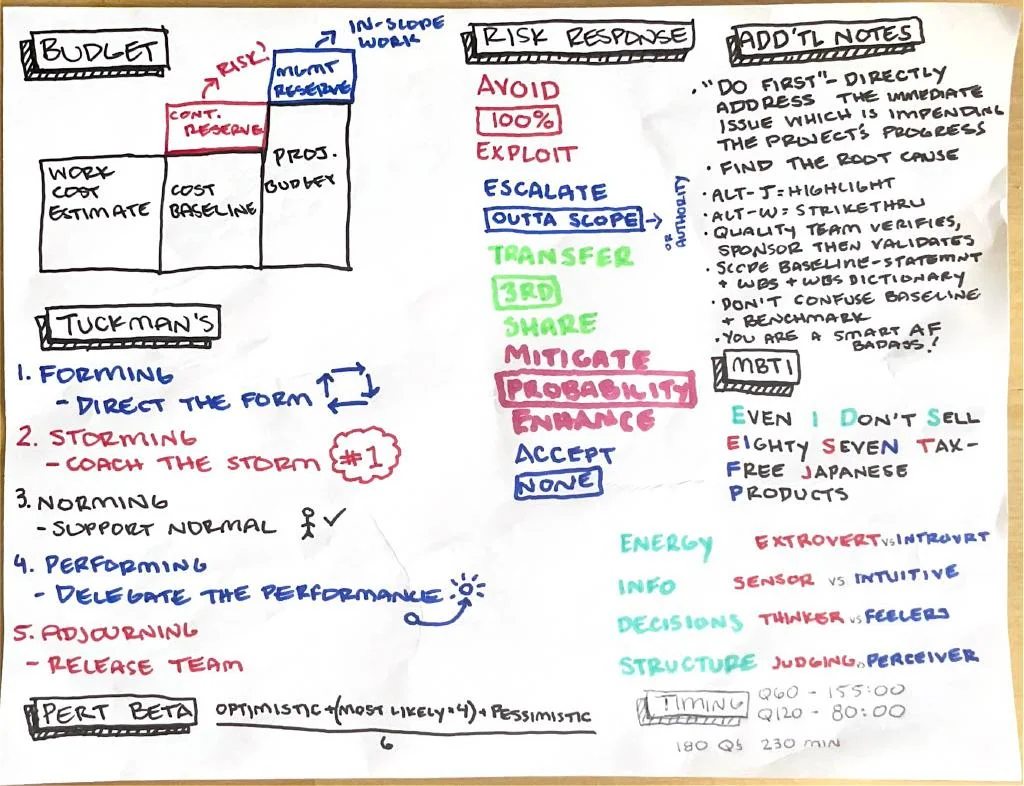 BUDGET
IN-SCOPE
WORK
RISK!
MGMT
RESERVE
CONT.
RESERVE
WORK
COST
ESTIMATE
COST
BASELINE
PROJ.
BUDGET
TUCKMAN'S
1. FORMING
- DIRECT THE FORM
2. STORMING
- COACH THE STORM #1
3. NORMING
- SUPPORT NORMAL
4. PERFORMING
- DELEGATE THE PERFORMANCE
5. ADJOURNING
- RELEASE TEAM
PERT BETA
OPTIMISTIC + (MOST LIKELY * 4) + PESSIMISTIC
6
RISK RESPONSE
AVOID
100%
EXPLOIT
ESCALATE
OUTTA SCOPE →
OR AUTHORITY
TRANSFER
3RD
SHARE
MITIGATE
PROBABILITY
ENHANCE
ACCEPT
NONE
ADD'TL NOTES
• "DO FIRST" - DIRECTLY
ADDRESS THE IMMEDIATE
ISSUE WHICH IS IMPENDING
THE PROJECT'S PROGRESS
• FIND THE ROOT CAUSE
• ALT-J = HIGHLIGHT
• ALT-W = STRIKETHRU
• QUALITY TEAM VERIFIES,
SPONSOR THEN VALIDATES
• SCOPE BASELINE - STATEMNT
+ WBS + WBS DICTIONARY
• DON'T CONFUSE BASELINE
+ BENCHMARK
• YOU ARE A SMART AF
BADASS!
MBTI
EVEN I DON'T SELL
EIGHTY SEVEN TAX-
FREE JAPANESE
PRODUCTS
ENERGY EXTROVERT vs INTROVRT
INFO SENSOR vs INTUITIVE
DECISIONS THINKER vs FEELERS
STRUCTURE JUDGING vs PERCEIVER
TIMING
Q60 - 155:00
Q120 - 80:00
180 Qs 230 MIN